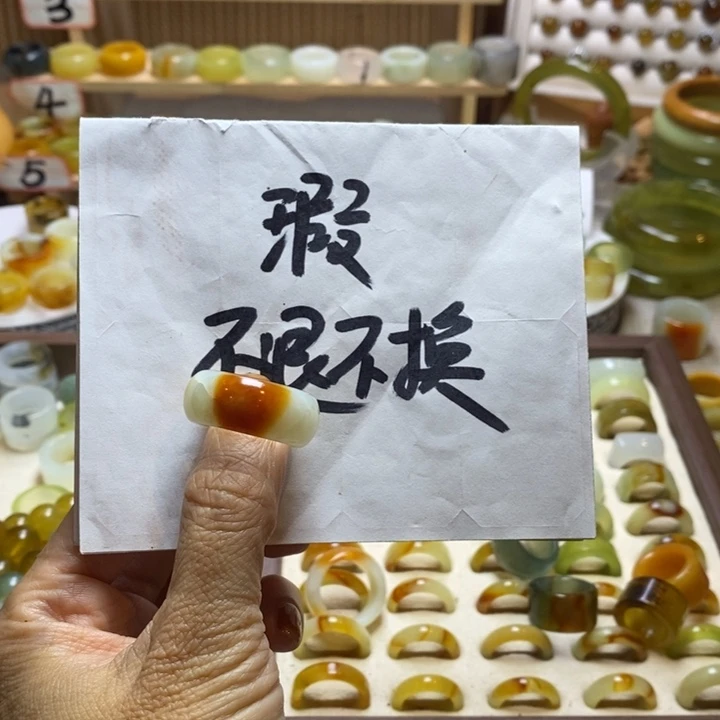 3
4
5
瑕
不退不换